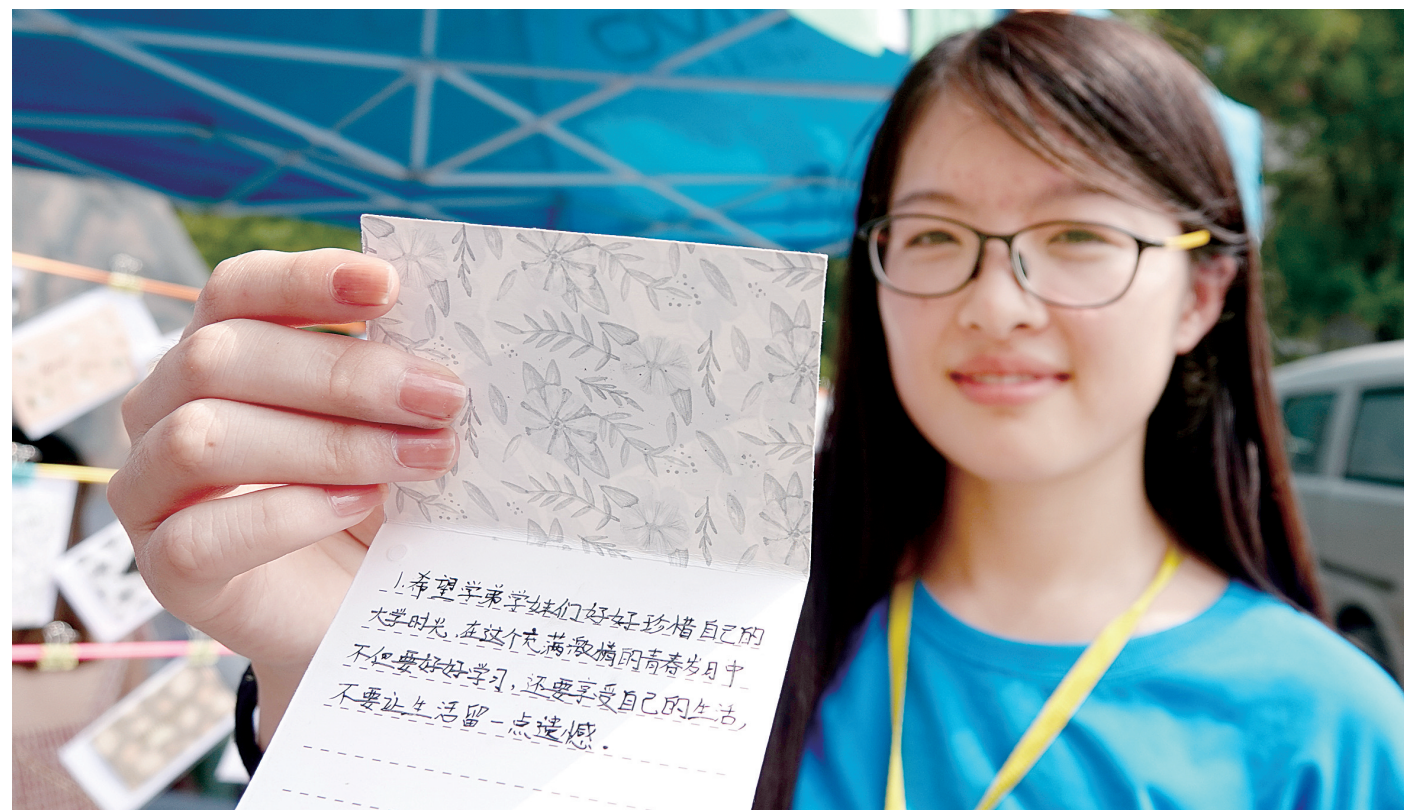 1.希望学弟学妹们好好珍惜自己的
大学时光,在这个充满激情的青春岁月中
不但要好好学习,还要享受自己的生活,
不要让生活留一点遗憾.